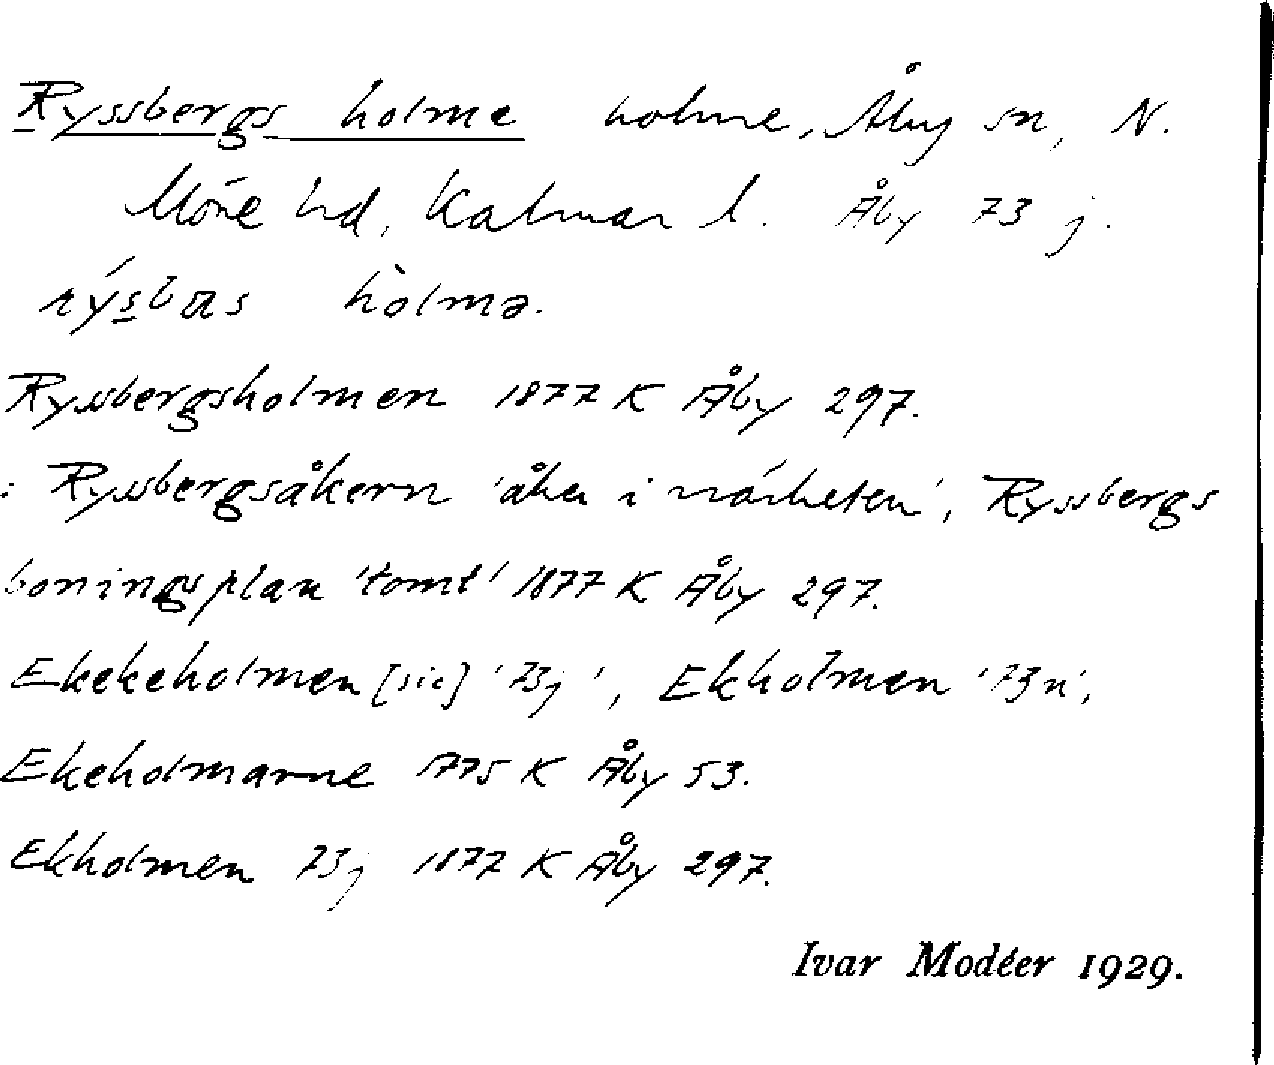 Ryssbergs holme holme, Åby sn, N.
Möre hd, Kalmar l. Åby 73 j.
hòlmə.
Ryssbergsholmen 1877 K Åby 297.
: Ryssbergsåkern 'åker i närheten', Ryssbergs
boningsplan 'tomt' 1877 K Åby 297.
Ekekeholmen [sic] '73j', Ekholmen '73n',
Ekeholmarne 1775 K Åby 53.
Ekholmen 73j 1877 K Åby 297.
Ivar Modéer 1929.